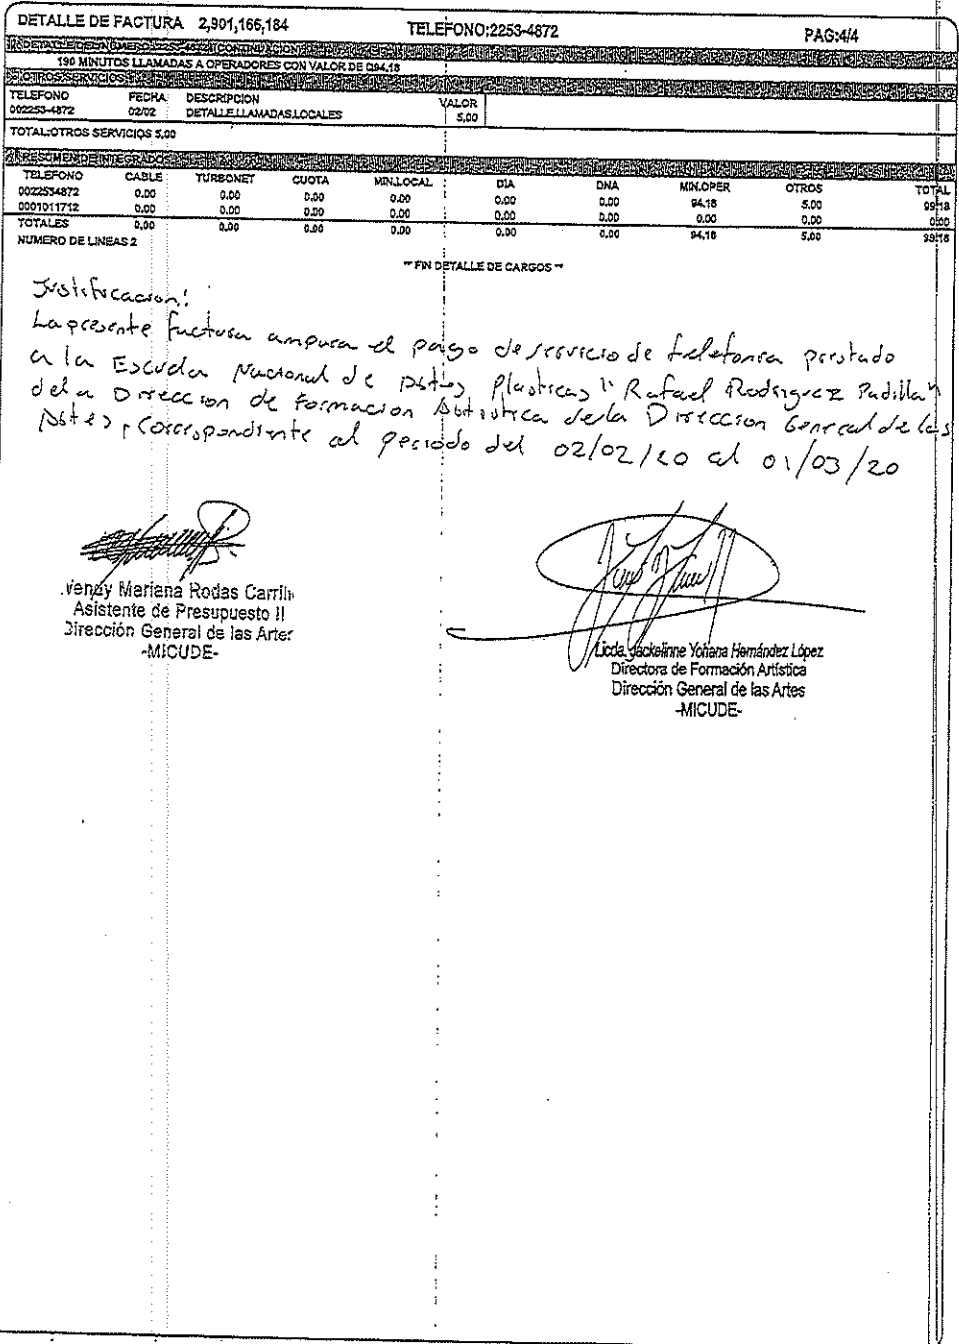 DETALLE DE FACTURA 2,901,166,184 TELEFONO:2253-4872 PAG:4/4
DETALLE DEL NUMERO: 2253-4872 (CONTINUACION)
190 MINUTOS LLAMADAS A OPERADORES CON VALOR DE Q94,18
OTROS SERVICIOS
TELEFONO FECHA DESCRIPCION VALOR
002253-4872 02/02 DETALLE.LLAMADAS.LOCALES 5,00
TOTAL:OTROS SERVICIOS 5,00
RESUMEN DE INTEGRADO
TELEFONO CABLE TURBONET CUOTA MIN.LOCAL DIA DNA MIN.OPER OTROS TOTAL
0022534872 0.00 0.00 0.00 0.00 0.00 0.00 94.18 5.00 99.18
0001011712 0.00 0.00 0.00 0.00 0.00 0.00 0.00 0.00 0.00
TOTALES 0,00 0.00 0.00 0.00 0.00 0.00 94,18 5.00 99.18
NUMERO DE LINEAS 2
** FIN DETALLE DE CARGOS **
Justificacion:
La presente factura ampara el pago de servicio de telefonia prestado
a la Escuela Nacional de Artes Plasticas "Rafael Rodriguez Padilla"
de la Direccion de Formacion Artistica de la Direccion General de las
Artes, Correspondiente al periodo del 02/02/20 al 01/03/20
Wendy Mariana Rodas Carrillo
Asistente de Presupuesto II
Dirección General de las Artes
-MICUDE-
Licda. Jackelinne Yohana Hernández López
Directora de Formación Artística
Dirección General de las Artes
-MICUDE-